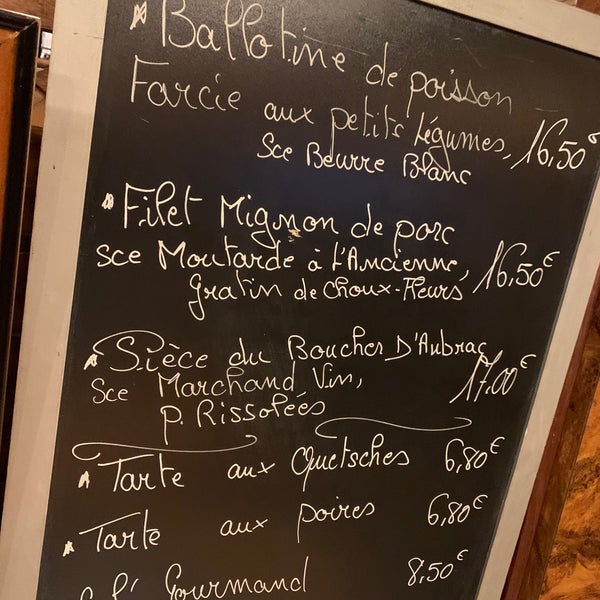 * Ballotine de poisson
Farcie aux petits légumes, 16,50€
Sce Beurre Blanc
* Filet Mignon de porc
sce Moutarde à l'Ancienne, 16,50€
gratin de choux-fleurs
* Pièce du Boucher D'Aubrac
Sce Marchand Vin, 17.00€
p. Rissolées
* Tarte aux Quetsches 6,80€
* Tarte aux poires 6,80€
Gourmand 8,50€